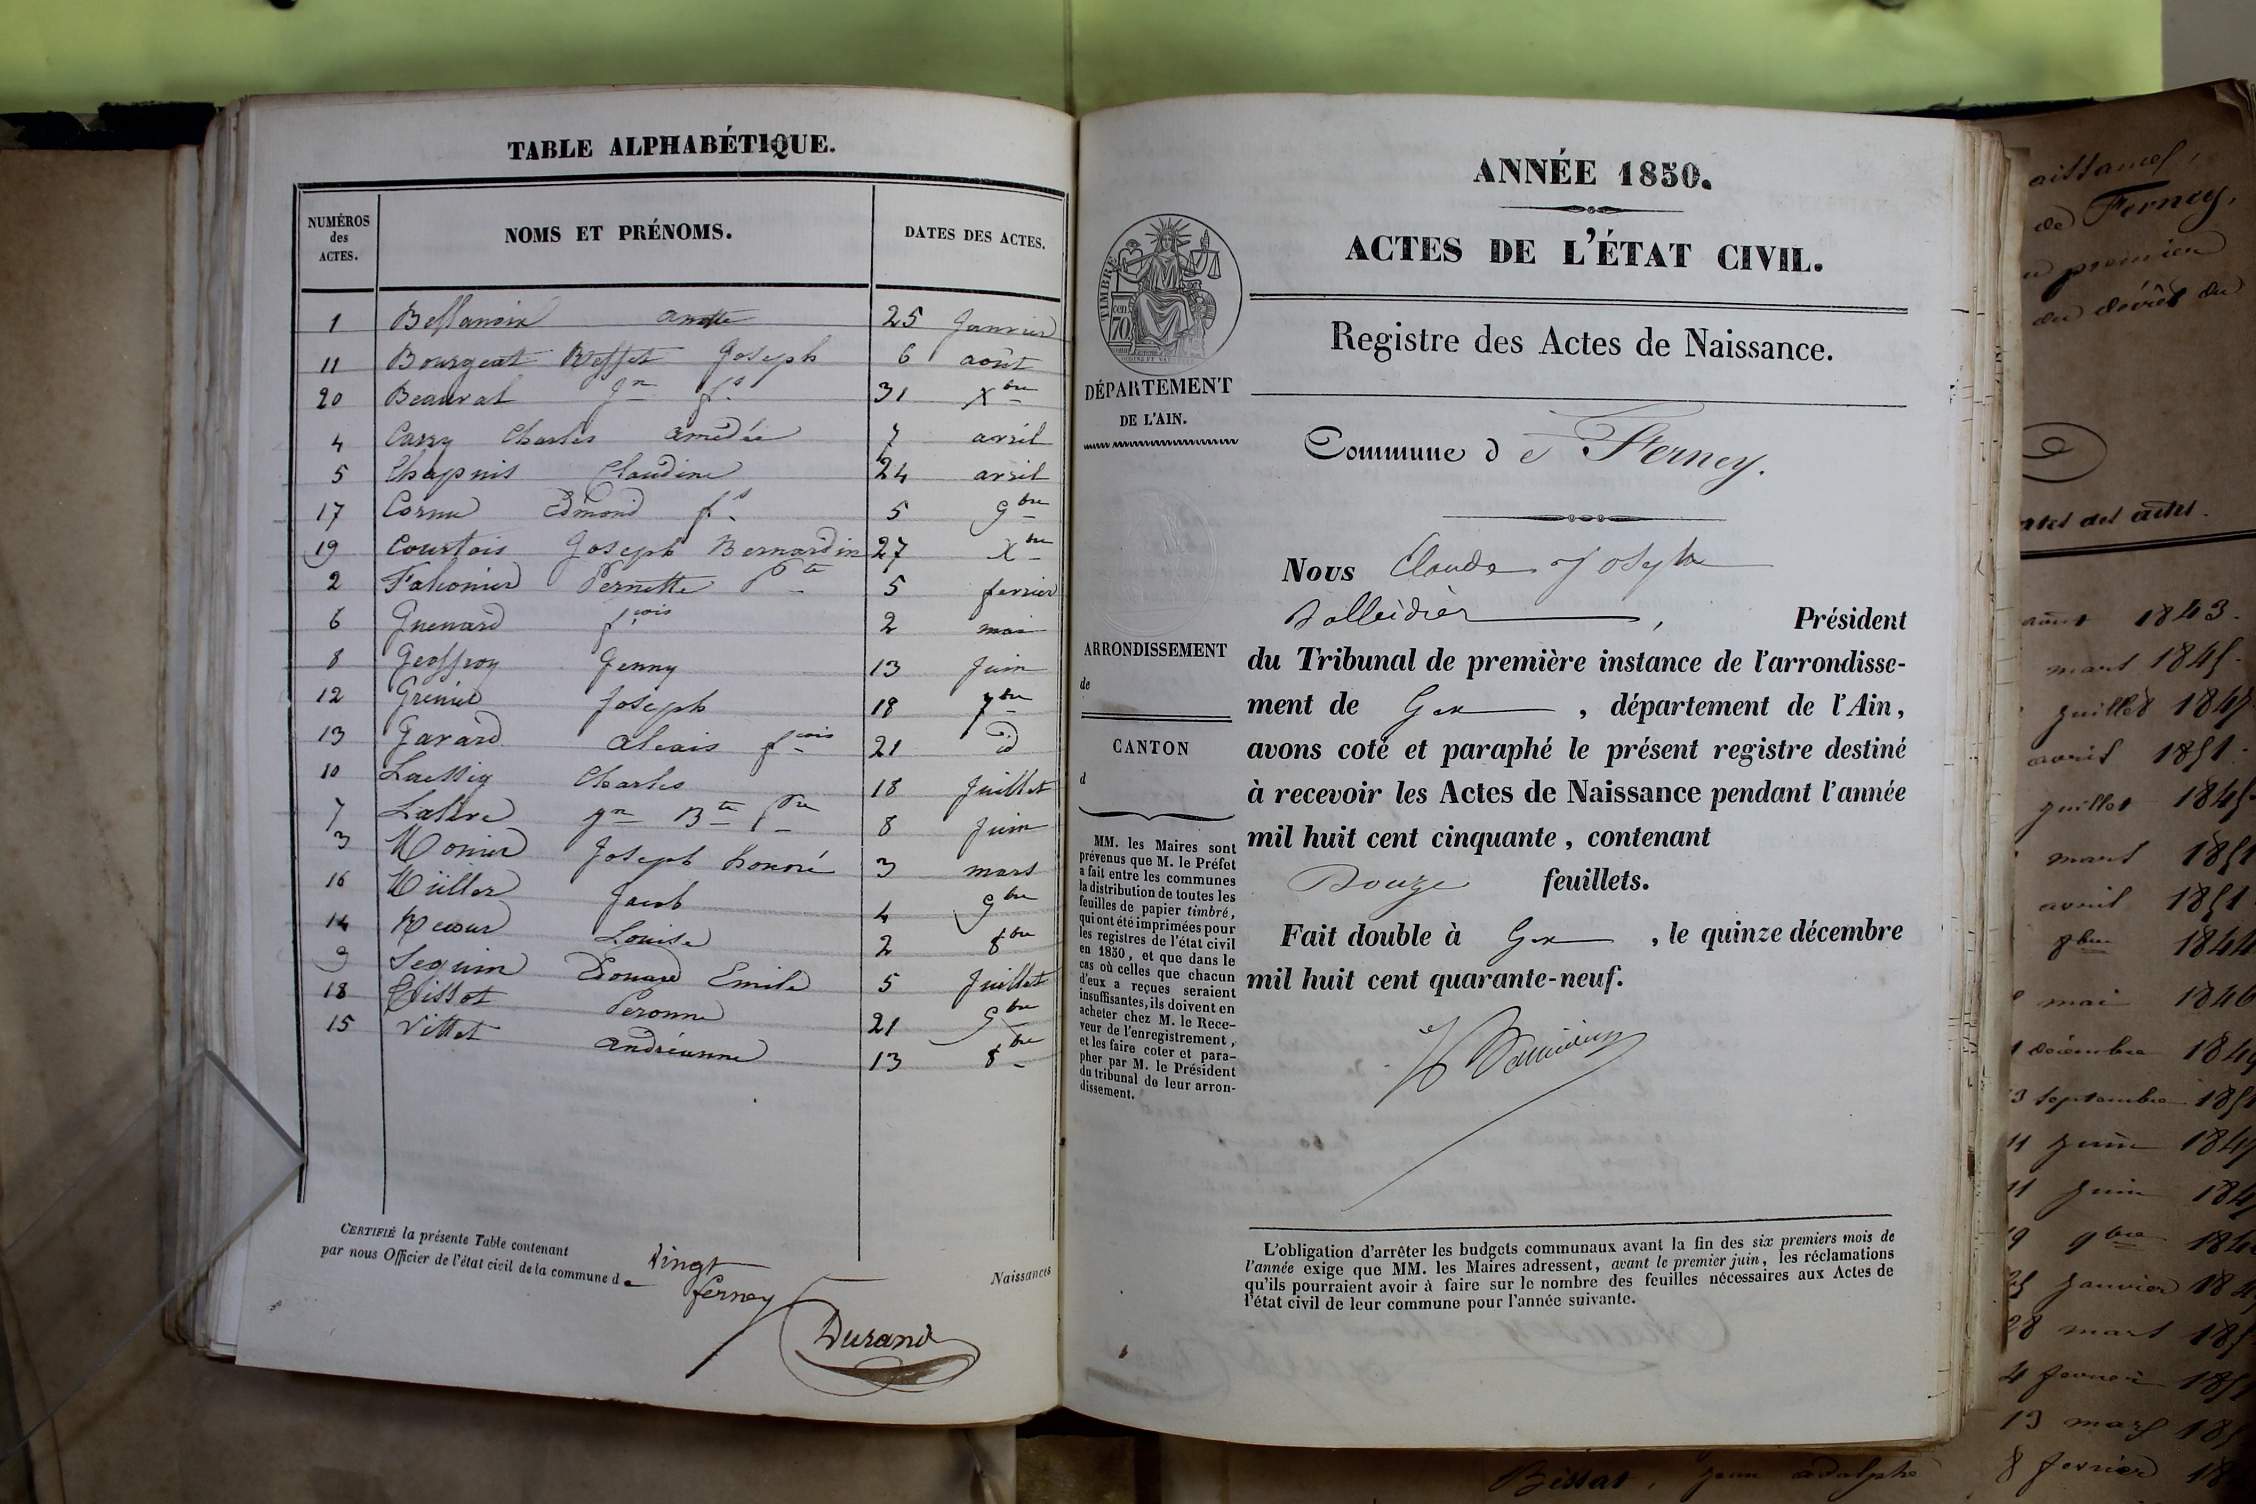 TABLE ALPHABÉTIQUE.
NUMÉROS des ACTES.
NOMS ET PRÉNOMS.
DATES DES ACTES.
1 25 Janvier
11 Bourgeat Joseph 6 août
20 Beauval Jn fs 31 Xbre
4 Carry Charles amédée 7 avril
5 Chapuis Claudine 24 avril
17 Cornu Edmond fs 5 9bre
19 Courtois Joseph Bernardin 27 Xbre
2 Falconier Pernette 5 fevrier
6 Guenard fçois 2 mai
8 Geoffroy Jenny 13 Juin
12 Grenier Joseph 18 7bre
13 Gavard alexis fçois 21 id
10 Charles 18 Juillet
7 Jn Bte 8 Juin
3 Monier Joseph honoré 3 mars
16 Müller Jacob 4 9bre
14 Louise 2 8bre
9 Seguin Edouard Emile 5 Juillet
18 Peronne 21 9bre
15 Vittet andréanne 13 8bre
CERTIFIÉ la présente Table contenant Vingt Naissances
par nous Officier de l'état civil de la commune de ferney
Durand
ANNÉE 1850.
ACTES DE L'ÉTAT CIVIL.
Registre des Actes de Naissance.
TIMBRE
cen.
70
DÉPARTEMENT
DE L'AIN.
ARRONDISSEMENT
de
CANTON
d
MM. les Maires sont
prévenus que M. le Préfet
a fait entre les communes
la distribution de toutes les
feuilles de papier timbré,
qui ont été imprimées pour
les registres de l'état civil
en 1850, et que dans le
cas où celles que chacun
d'eux a reçues seraient
insuffisantes, ils doivent en
acheter chez M. le Rece-
veur de l'enregistrement,
et les faire coter et para-
pher par M. le Président
du tribunal de leur arron-
dissement.
Commune de Ferney.
Nous Claude Joseph
, Président
du Tribunal de première instance de l'arrondisse-
ment de Gex , département de l'Ain,
avons coté et paraphé le présent registre destiné
à recevoir les Actes de Naissance pendant l'année
mil huit cent cinquante, contenant
Douze feuillets.
Fait double à Gex , le quinze décembre
mil huit cent quarante-neuf.
L'obligation d'arrêter les budgets communaux avant la fin des six premiers mois de
l'année exige que MM. les Maires adressent, avant le premier juin, les réclamations
qu'ils pourraient avoir à faire sur le nombre des feuilles nécessaires aux Actes de
l'état civil de leur commune pour l'année suivante.
de Ferney,
premier
du décret du
des actes.
août 1843.
mars 1845.
juillet
avril 1851.
juillet 1845
mars 1851
avril 1851
8bre 1844
mai 1846
décembre
septembre
juin
juin
9bre
janvier
28 mars
4 fevrier
13 mars
8 fevrier
Bissat, jean adolphe